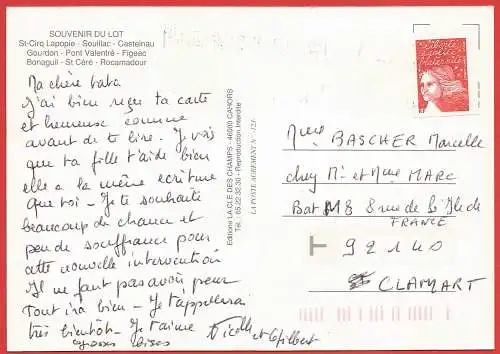 SOUVENIR DU LOT
St-Cirq Lapopie - Souillac - Castelnau
Gourdon - Pont Valentré - Figeac
Bonaguil - St Céré - Rocamadour
Ma chère
J'ai bien reçu ta carte
et heureuse comme
avant de te lire. Je vois
que ta fille t'aide bien
elle a la même écriture
que toi - Je te souhaite
beaucoup de chance et
peu de souffrance pour
cette nouvelle intervention
Il ne faut pas avoir peur
tout ira bien - Je t'appellerai
très bientôt - Je t'aime
grosses bises
Nicole et Gilbert
Editions LA CLE DES CHAMPS - 46000 CAHORS
Tél.: 65.22.32.36 - Reproduction Interdite
LA POSTE AGREMENT N°
Liberté
Egalité
Fraternité
RF
Mme BASCHER Marcelle
chez Mr et Mme MARC
Bat M8 8 rue de
FRANCE
T 92140
CLAMART